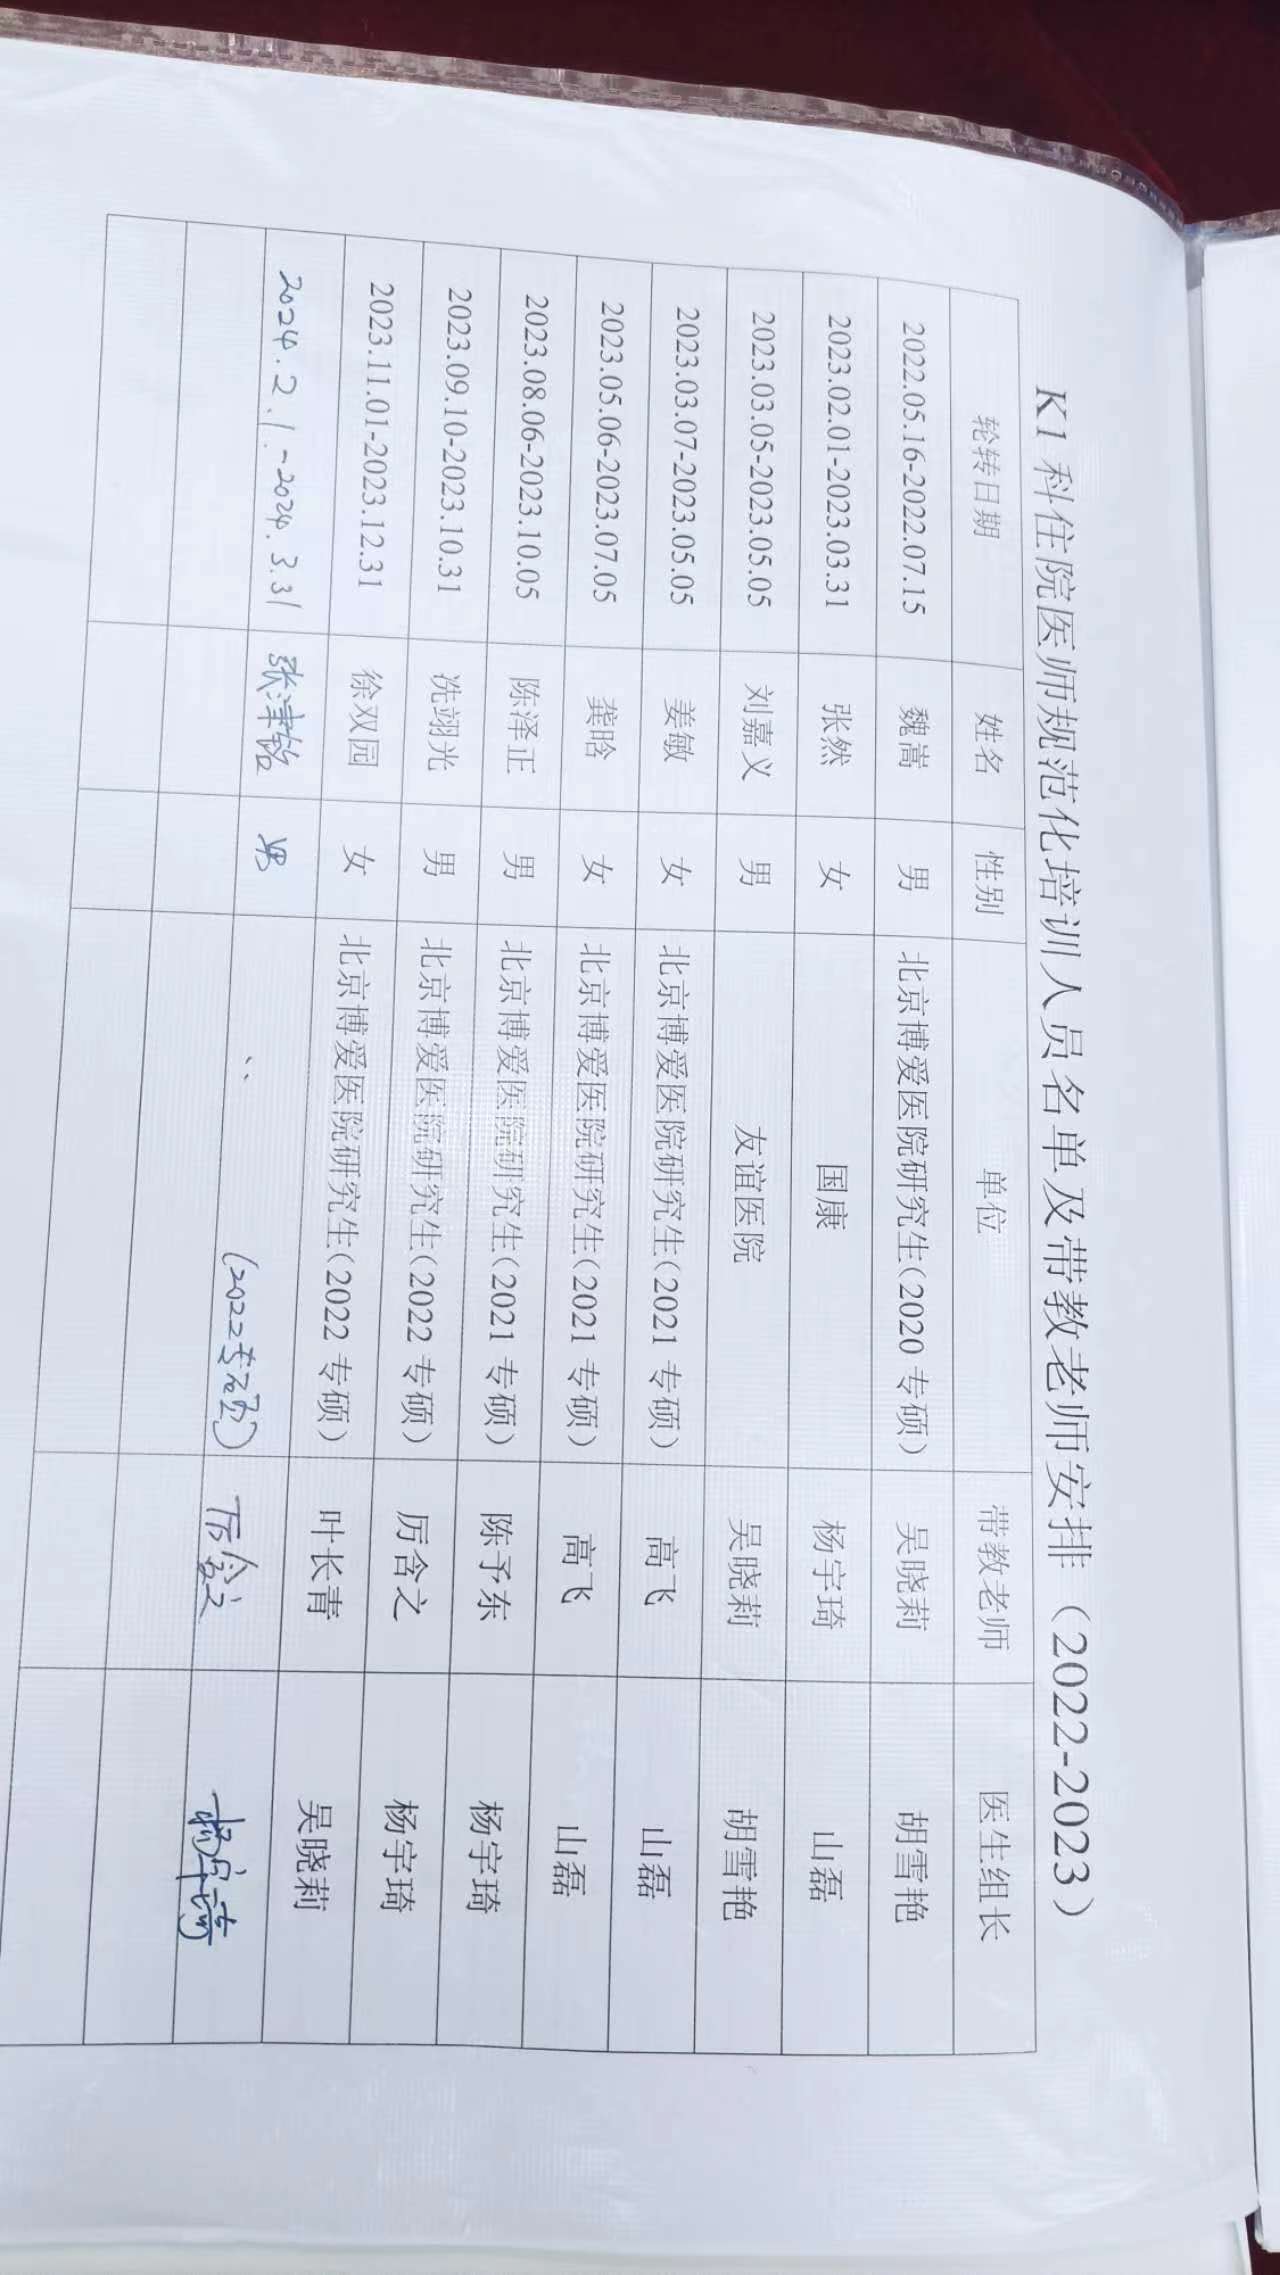 K1 科住院医师规范化培训人员名单及带教老师安排（2022-2023）
轮转日期 姓名 性别 单位 带教老师 医生组长
2022.05.16-2022.07.15 魏嵩 男 北京博爱医院研究生(2020 专硕) 吴晓莉 胡雪艳
2023.02.01-2023.03.31 张然 女 国康 杨宇琦 山磊
2023.03.05-2023.05.05 刘嘉义 男 友谊医院 吴晓莉 胡雪艳
2023.03.07-2023.05.05 姜敏 女 北京博爱医院研究生(2021 专硕) 高飞 山磊
2023.05.06-2023.07.05 龚晗 女 北京博爱医院研究生(2021 专硕) 高飞 山磊
2023.08.06-2023.10.05 陈泽正 男 北京博爱医院研究生(2021 专硕) 陈予东 杨宇琦
2023.09.10-2023.10.31 冼翊光 男 北京博爱医院研究生(2022 专硕) 厉含之 杨宇琦
2023.11.01-2023.12.31 徐双园 女 北京博爱医院研究生(2022 专硕) 叶长青 吴晓莉
2024.2.1.-2024.3.31 张津铭 男 、、 (2022专硕) 厉含之 杨宇琦